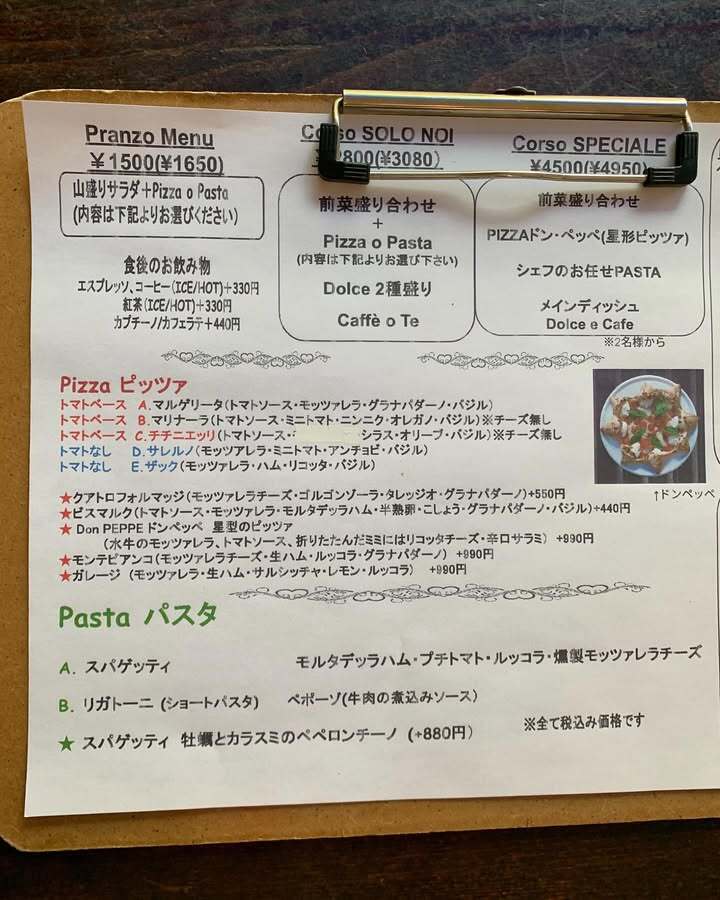 Pranzo Menu
￥1500(¥1650)
山盛りサラダ+Pizza o Pasta
(内容は下記よりお選びください)
食後のお飲み物
エスプレッソ、コーヒー(ICE/HOT)+330円
紅茶(ICE/HOT)+330円
カプチーノ/カフェラテ+440円
SOLO NOI
2800(¥3080)
前菜盛り合わせ
+
Pizza o Pasta
(内容は下記よりお選び下さい)
Dolce 2種盛り
Caffè o Te
Corso SPECIALE
¥4500(¥4950)
前菜盛り合わせ
PIZZAドン・ペッペ(星形ピッツァ)
シェフのお任せPASTA
メインディッシュ
Dolce e Cafe
※2名様から
Pizza ピッツァ
トマトベース A.マルゲリータ(トマトソース・モッツァレラ・グラナパダーノ・バジル)
トマトベース B.マリナーラ(トマトソース・ミニトマト・ニンニク・オレガノ・バジル)※チーズ無し
トマトベース C.チチニエッリ(トマトソース・シラス・オリーブ・バジル)※チーズ無し
トマトなし D.サレルノ(モッツアレラ・ミニトマト・アンチョビ・バジル)
トマトなし E.ザック(モッツァレラ・ハム・リコッタ・バジル)
★クアトロフォルマッジ(モッツァレラチーズ・ゴルゴンゾーラ・タレッジオ・グラナパダーノ)+550円
★ビスマルク(トマトソース・モッツァレラ・モルタデッラハム・半熟卵・こしょう・グラナパダーノ・バジル)+440円
★ Don PEPPE ドンペッペ 星型のピッツァ
(水牛のモッツァレラ、トマトソース、折りたたんだミミにはリコッタチーズ・辛口サラミ) +990円
★モンテビアンコ(モッツァレラチーズ・生ハム・ルッコラ・グラナパダーノ) +990円
★ガレージ (モッツァレラ・生ハム・サルシッチャ・レモン・ルッコラ) +990円
↑ドンペッペ
Pasta パスタ
A. スパゲッティ モルタデッラハム・プチトマト・ルッコラ・燻製モッツァレラチーズ
B. リガトーニ (ショートパスタ) ペポーゾ(牛肉の煮込みソース)
★ スパゲッティ 牡蠣とカラスミのペペロンチーノ (+880円)
※全て税込み価格です